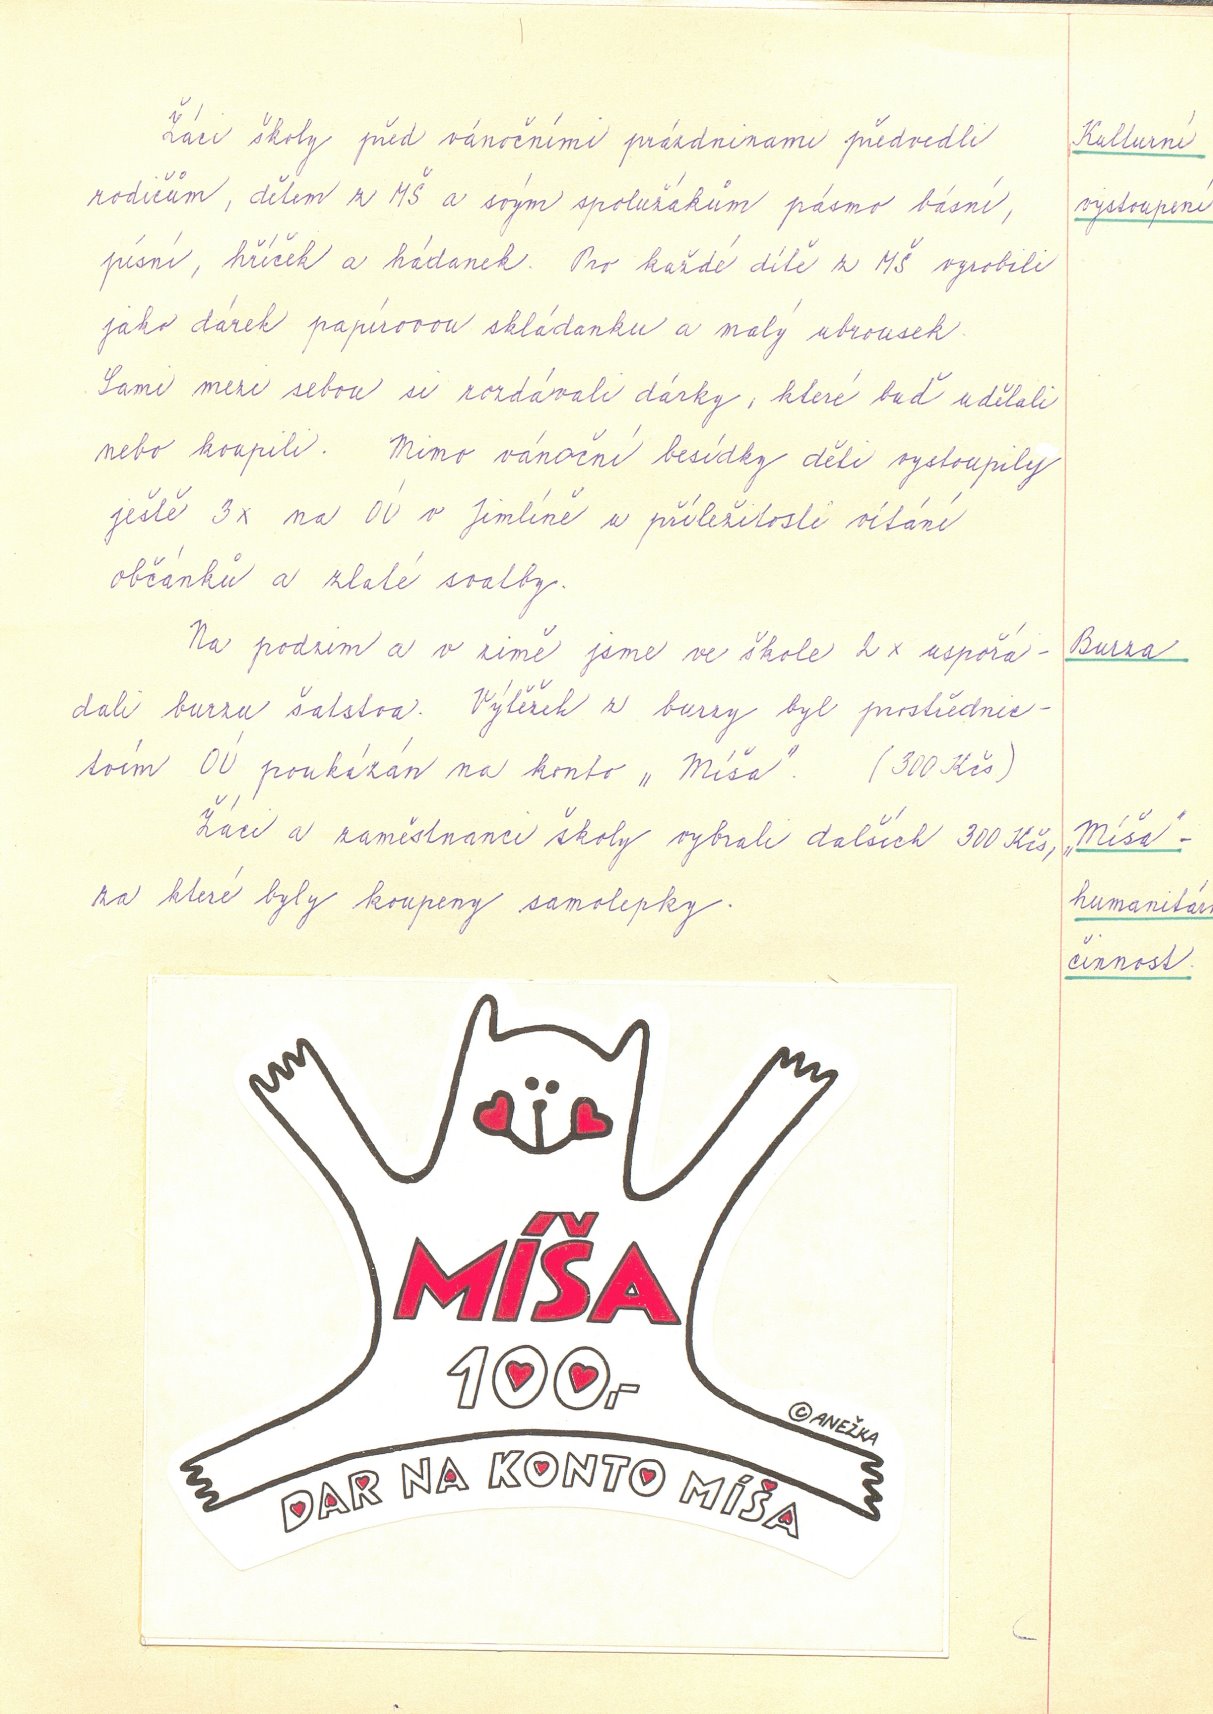 Žáci školy před vánočními prázdninami předvedli
Kulturní
rodičům, dětem z MŠ a svým spolužákům pásmo básní,
vystoupení
písní, hříček a hádanek. Pro každé dítě z MŠ vyrobili
jako dárek papírovou skládanku a malý ubrousek.
Sami mezi sebou si rozdávali dárky, které buď udělali
nebo koupili. Mimo vánoční besídky děti vystoupily
ještě 3x na OÚ v Jimlíně u příležitosti vítání
občánků a zlaté svatby.
Na podzim a v zimě jsme ve škole 2x uspořá-
Burza
dali burzu šatstva. Výtěžek z burzy byl prostřednic-
tvím OÚ poukázán na konto „Míša". (300 Kčs)
Žáci a zaměstnanci školy vybrali dalších 300 Kčs,
„Míša" -
za které byly koupeny samolepky.
humanitárn
činnost.
MÍŠA
100,-
© ANEŽKA
DAR NA KONTO MÍŠA